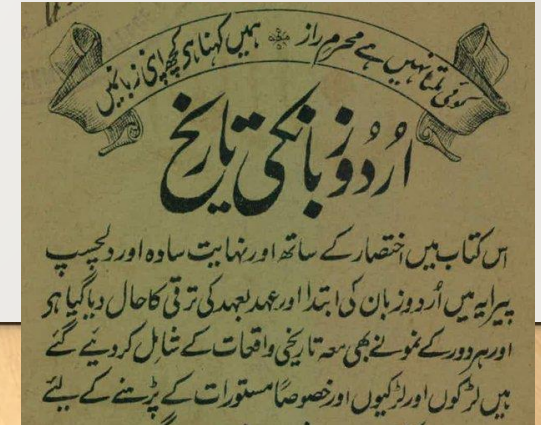 کوئی ملتا نہیں ہے محرم راز ہمیں کہنا ہی کچھ اپنی زبانمیں
اُردو زبانکی تاریخ
اس کتاب میں اختصار کے ساتھ اور نہایت سادہ اور دلچسپ
پیرایہ میں اُردو زبان کی ابتدا اور عہد بعہد کی ترقی کا حال دیا گیا ہی
اور ہر دور کے نمونے بھی معہ تاریخی واقعات کے شامل کر دیئے گئے
ہیں لڑکوں اور لڑکیوں اور خصوصًا مستورات کے پڑہنے کے لیئے